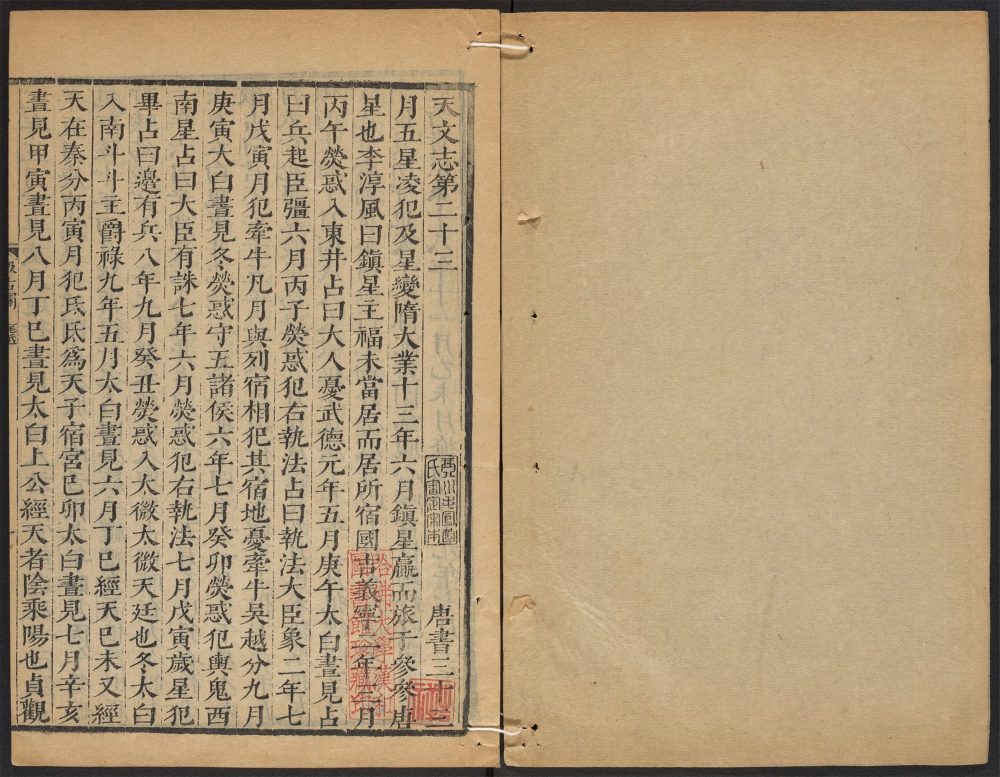 天文志第二十三 唐書三十三
月五星凌犯及星變隋大業十三年六月鎮星贏而旅于參參唐
星也李淳風曰鎮星主福未當居而居所宿國吉義寧二年三月
丙午熒惑入東井占曰大人憂武德元年五月庚午太白晝見占
曰兵起臣彊六月丙子熒惑犯右執法占曰執法大臣象二年七
月戊寅月犯牽牛凡月與列宿相犯其宿地憂牽牛吳越分九月
庚寅大白晝見冬熒惑守五諸侯六年七月癸卯熒惑犯輿鬼西
南星占曰大臣有誅七年六月熒惑犯右執法七月戊寅歲星犯
畢占曰邊有兵八年九月癸丑熒惑入太微太微天廷也冬太白
入南斗斗主爵祿九年五月太白晝見六月丁巳經天巳未又經
天在秦分丙寅月犯氐氐爲天子宿宮巳卯太白晝見七月辛亥
晝見甲寅晝見八月丁巳晝見太白上公經天者陰乘陽也貞觀
哈佛大學漢和
圖書館珍藏印